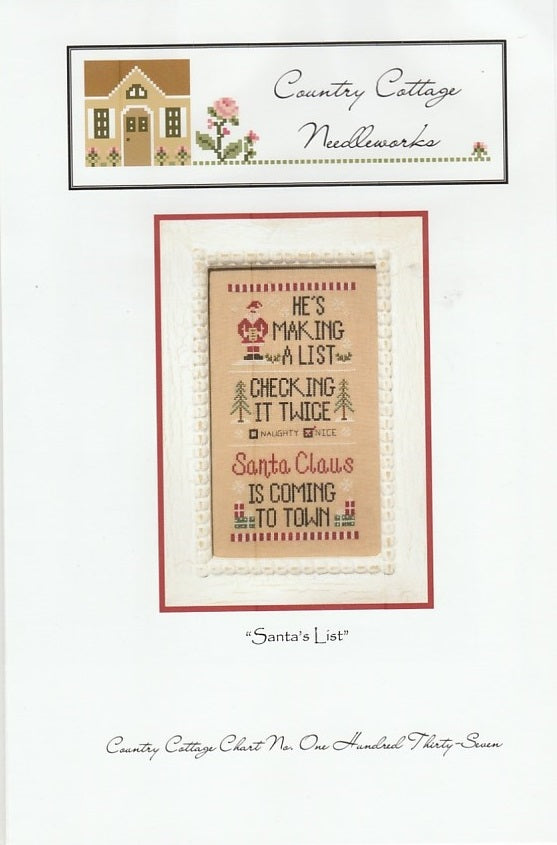 Country Cottage
Needleworks
HE'S
MAKING
A LIST
CHECKING
IT TWICE
NAUGHTY NICE
Santa Claus
IS COMING
TO TOWN
"Santa's List"
Country Cottage Chart No. One Hundred Thirty-Seven